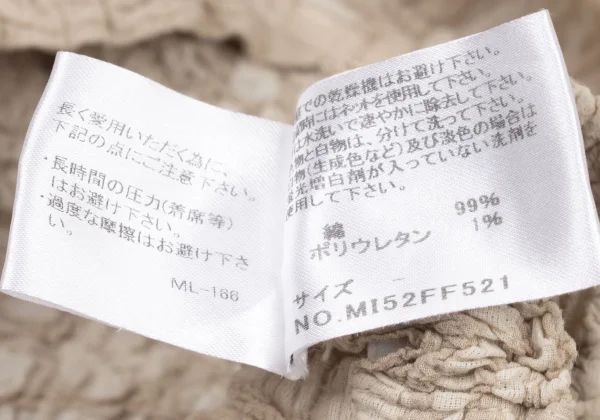 長く愛用いただく為に、
下記の点にご注意下さい。
・長時間の圧力(着席等)
はお避け下さい。
・過度な摩擦はお避け下さ
い。
ML-166
での乾燥機はお避け下さい。
にはネットを使用して下さい。
は水洗いで速やかに除去して下さい。
物と白物は、分けて洗って下さい。
物(生成色など)及び淡色の場合は
光増白剤が入っていない洗剤を
使用して下さい。
綿 99%
ポリウレタン 1%
サイズ
NO.MI52FF521